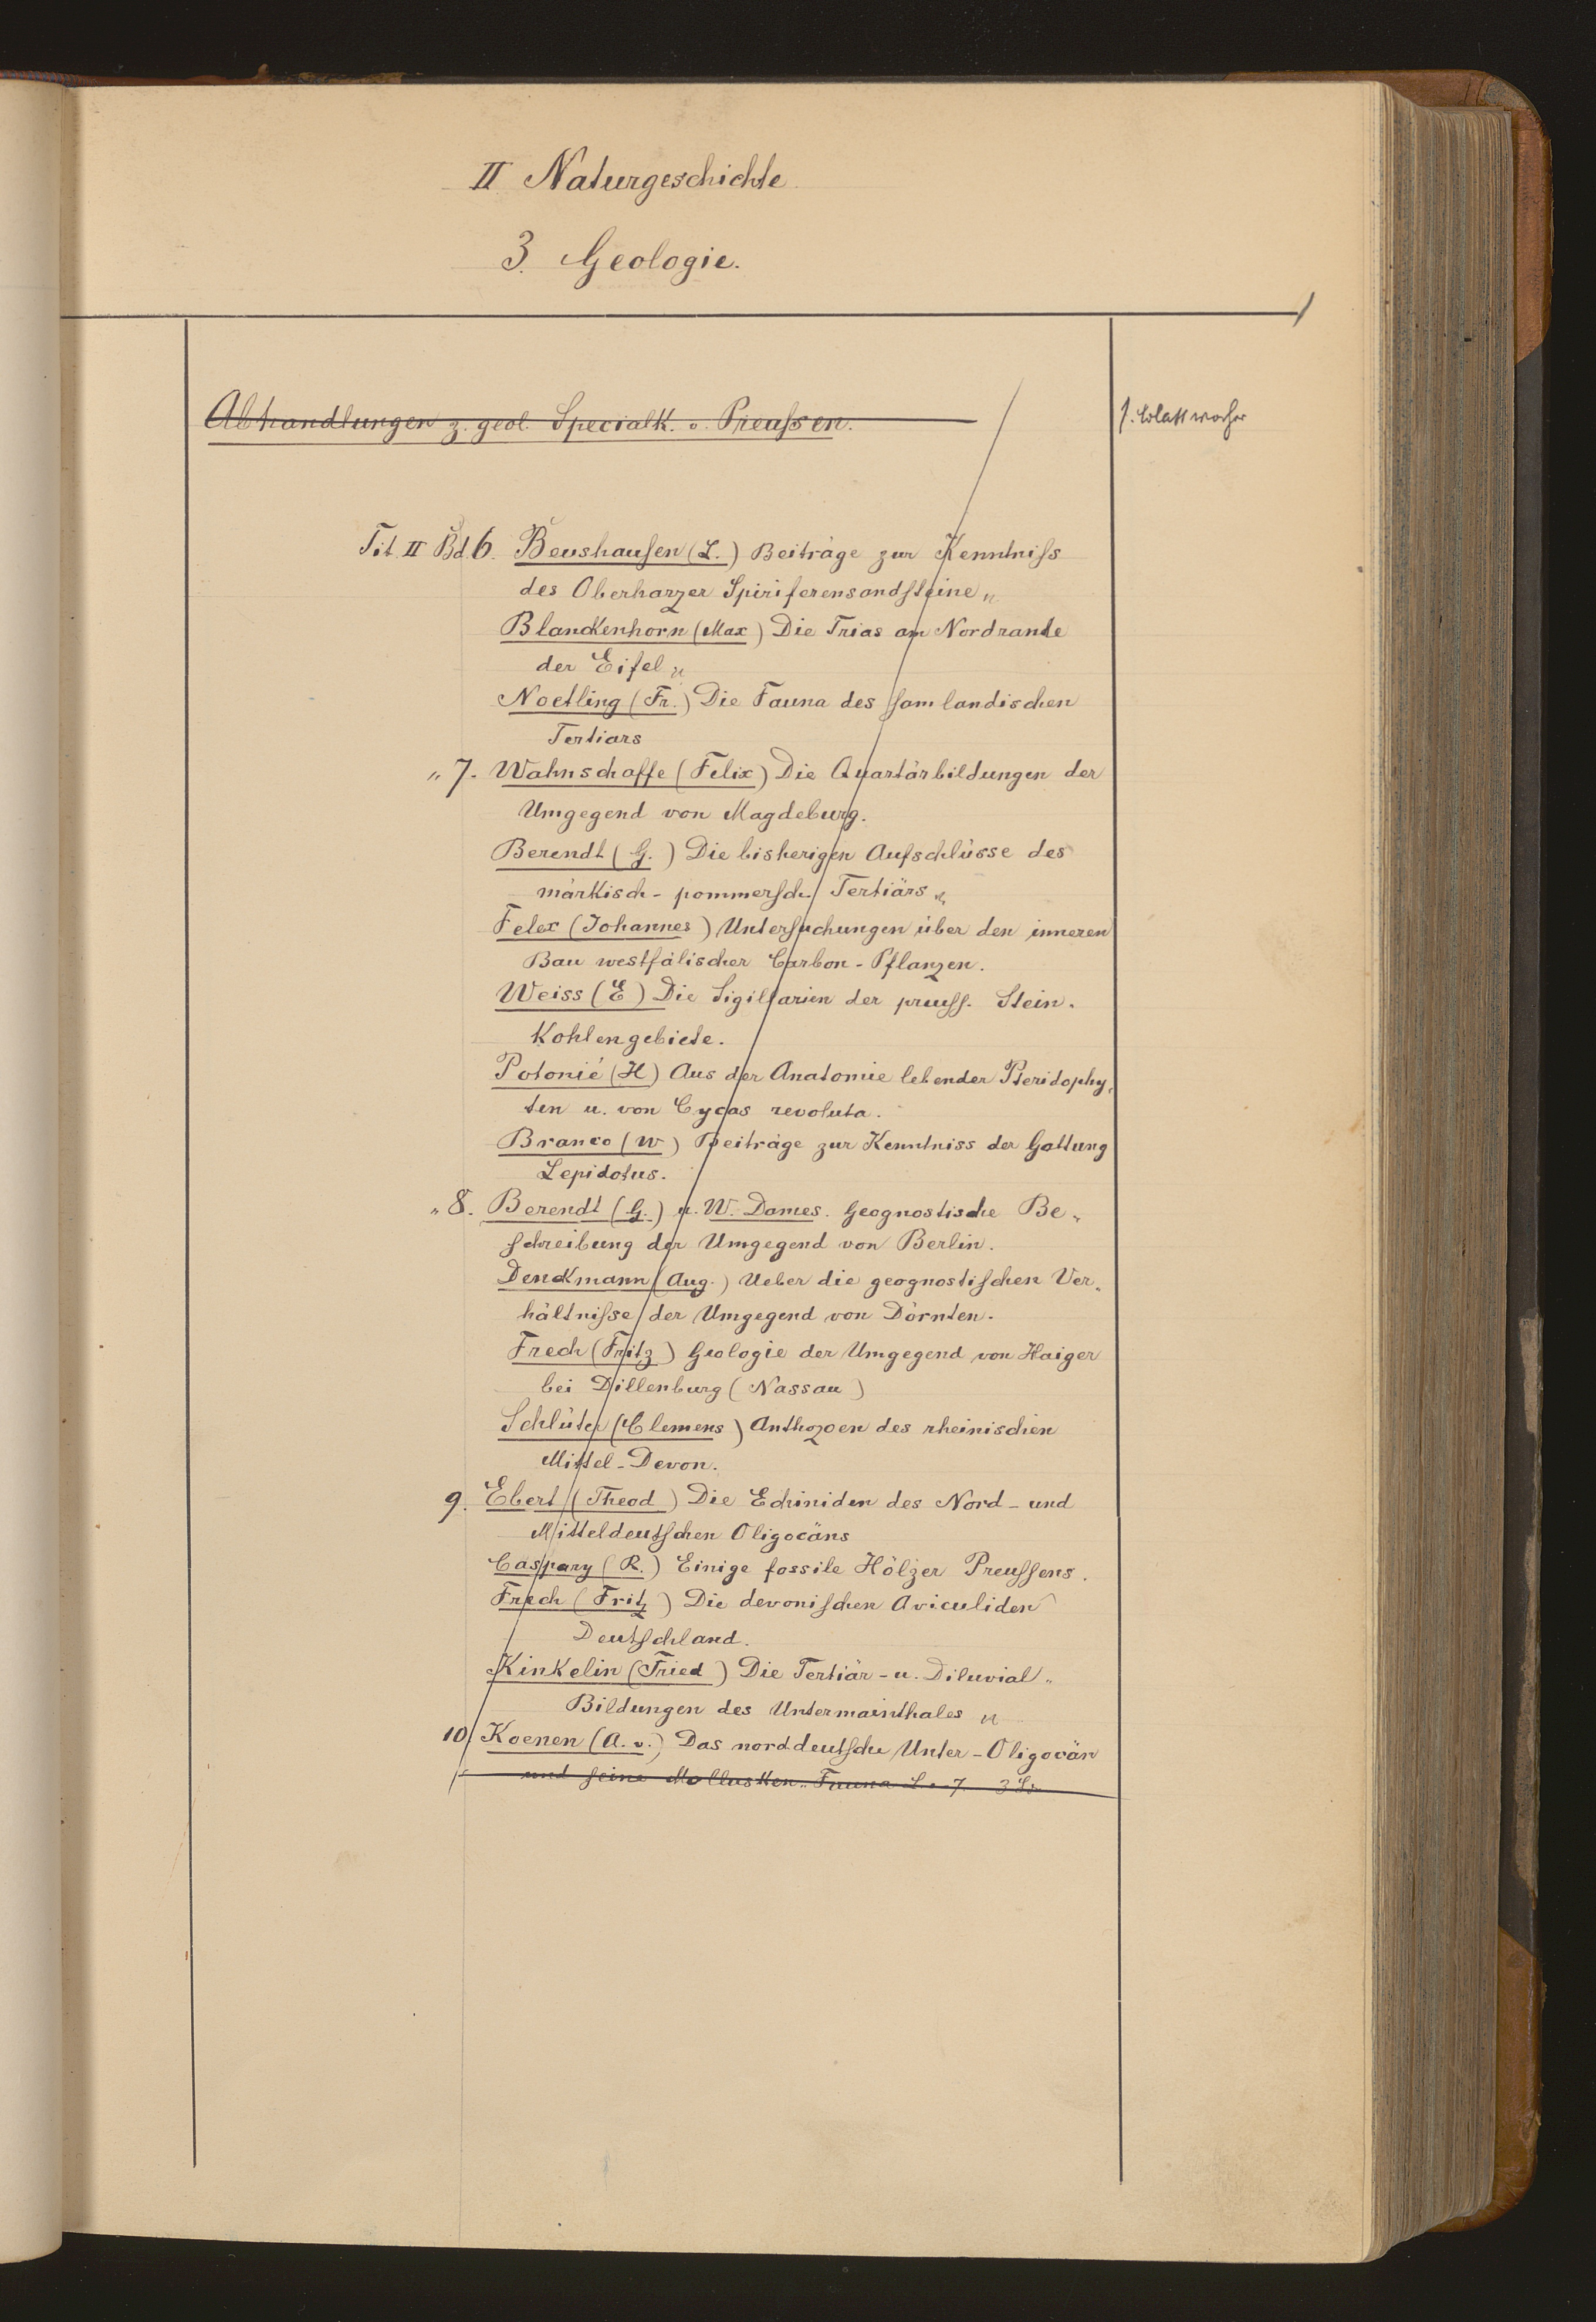 II Naturgeschichte
3. Geologie.
Abhandlungen z. geol. Specialk. v. Preußen.
Tit. II Bd. 6. Beushausen (L.) Beiträge zur Kenntniß
des Oberharzer Spiriferensandsteine
Blanckenhorn (Max) Die Trias am Nordrande
der Eifel
Noetling (Fr.) Die Fauna des samlandischen
Tertiars
" 7. Wahnschaffe (Felix) Die Quartärbildungen der
Umgegend von Magdeburg.
Berendt (G.) Die bisherigen Aufschlüsse des
märkisch-pommersch. Tertiärs
Felex (Johannes) Untersuchungen über den inneren
Bau westfälischer Carbon-Pflanzen.
Weiss (E) Die Sigillarien der preuss. Stein-
Kohlengebiete.
Potonié (H) Aus der Anatomie lebender Pteridophy-
ten u. von Cycas revoluta.
Branco (W) Beiträge zur Kenntniss der Gattung
Lepidotus.
" 8. Berendt (G.) u. W. Dames. Geognostische Be-
schreibung der Umgegend von Berlin.
Denckmann (Aug.) Ueber die geognostischen Ver-
hältniße der Umgegend von Dörnten.
Frech (Fritz) Geologie der Umgegend von Haiger
bei Dillenburg (Nassau)
Schlüter (Clemens) Anthozoen des rheinischen
Mittel-Devon.
9. Ebert (Theod) Die Echiniden des Nord- und
Mitteldeutschen Oligocäns
Caspary (R.) Einige fossile Hölzer Preussens.
Frech (Fritz) Die devonischen Aviculiden
Deutschland.
Kinkelin (Fried) Die Tertiär- u. Diluvial-
Bildungen des Untermainthales
10. Koenen (A. v.) Das norddeutsche Unter-Oligocän
und seine Mollusken-Fauna L. 7.